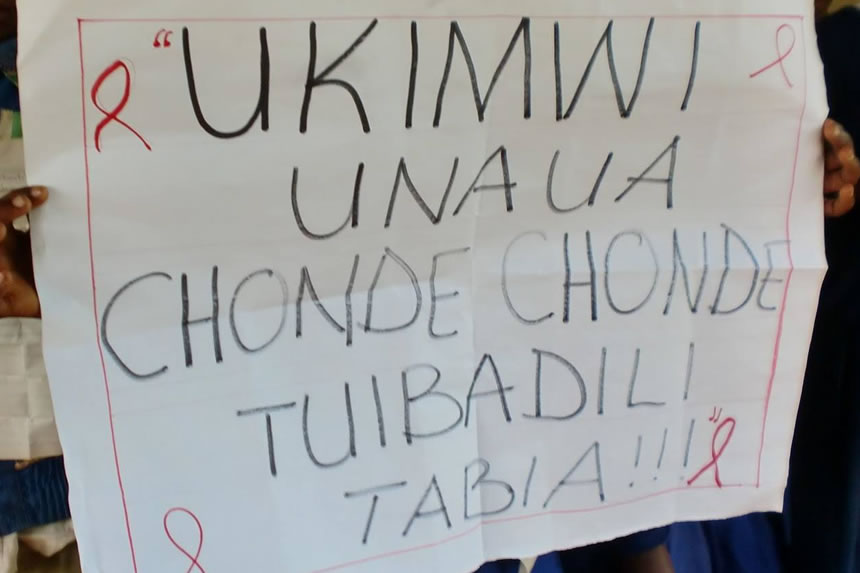 "UKIMWI
UNAUA
CHONDE CHONDE
TUIBADILI
TABIA!!!"